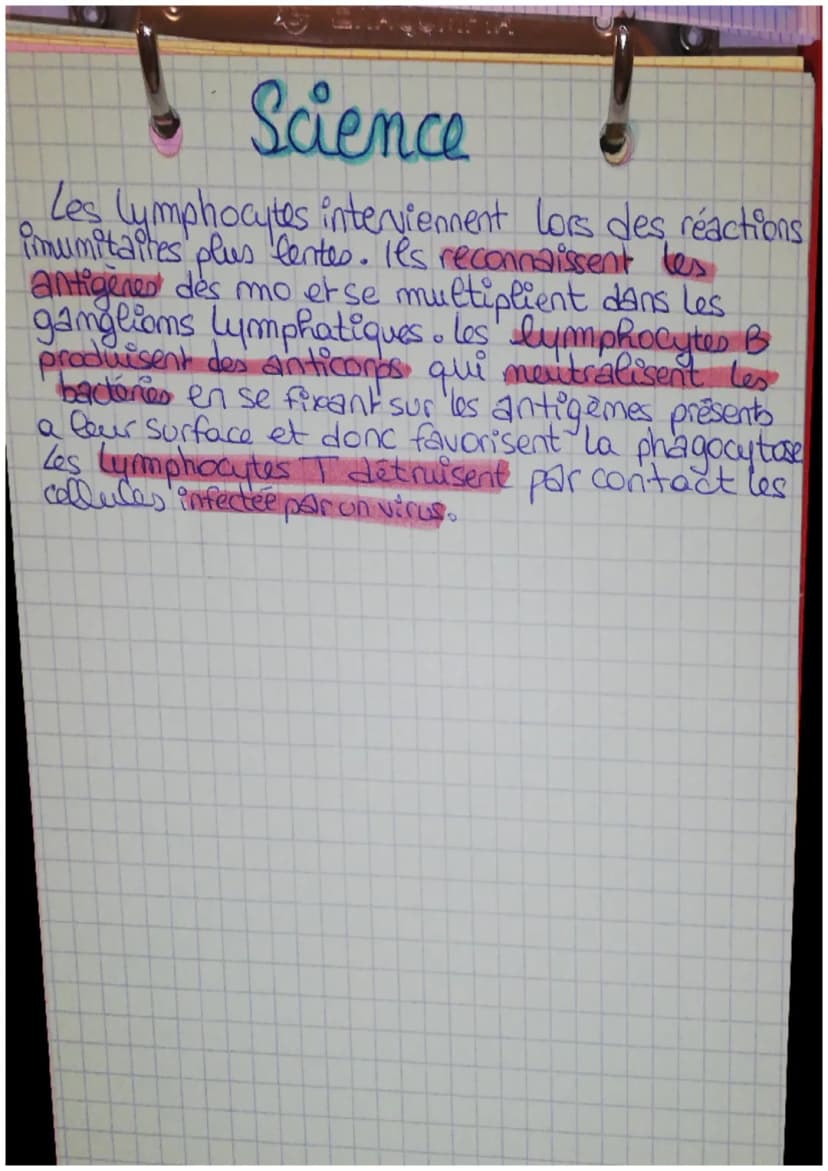 Science
Les lymphocytes interviennent lors des réactions
imumitaires plus lentes. Ils reconnaissent les
antigènes des mo et se multiplient dans les
ganglions lymphatiques. Les lymphocytes B
produisent des anticorps qui neutralisent les
bactéries en se fixant sur les antigènes présents
a leur surface et donc favorisent la phagocytose
Les lymphocytes T détruisent par contact les
cellules infectée par un virus.